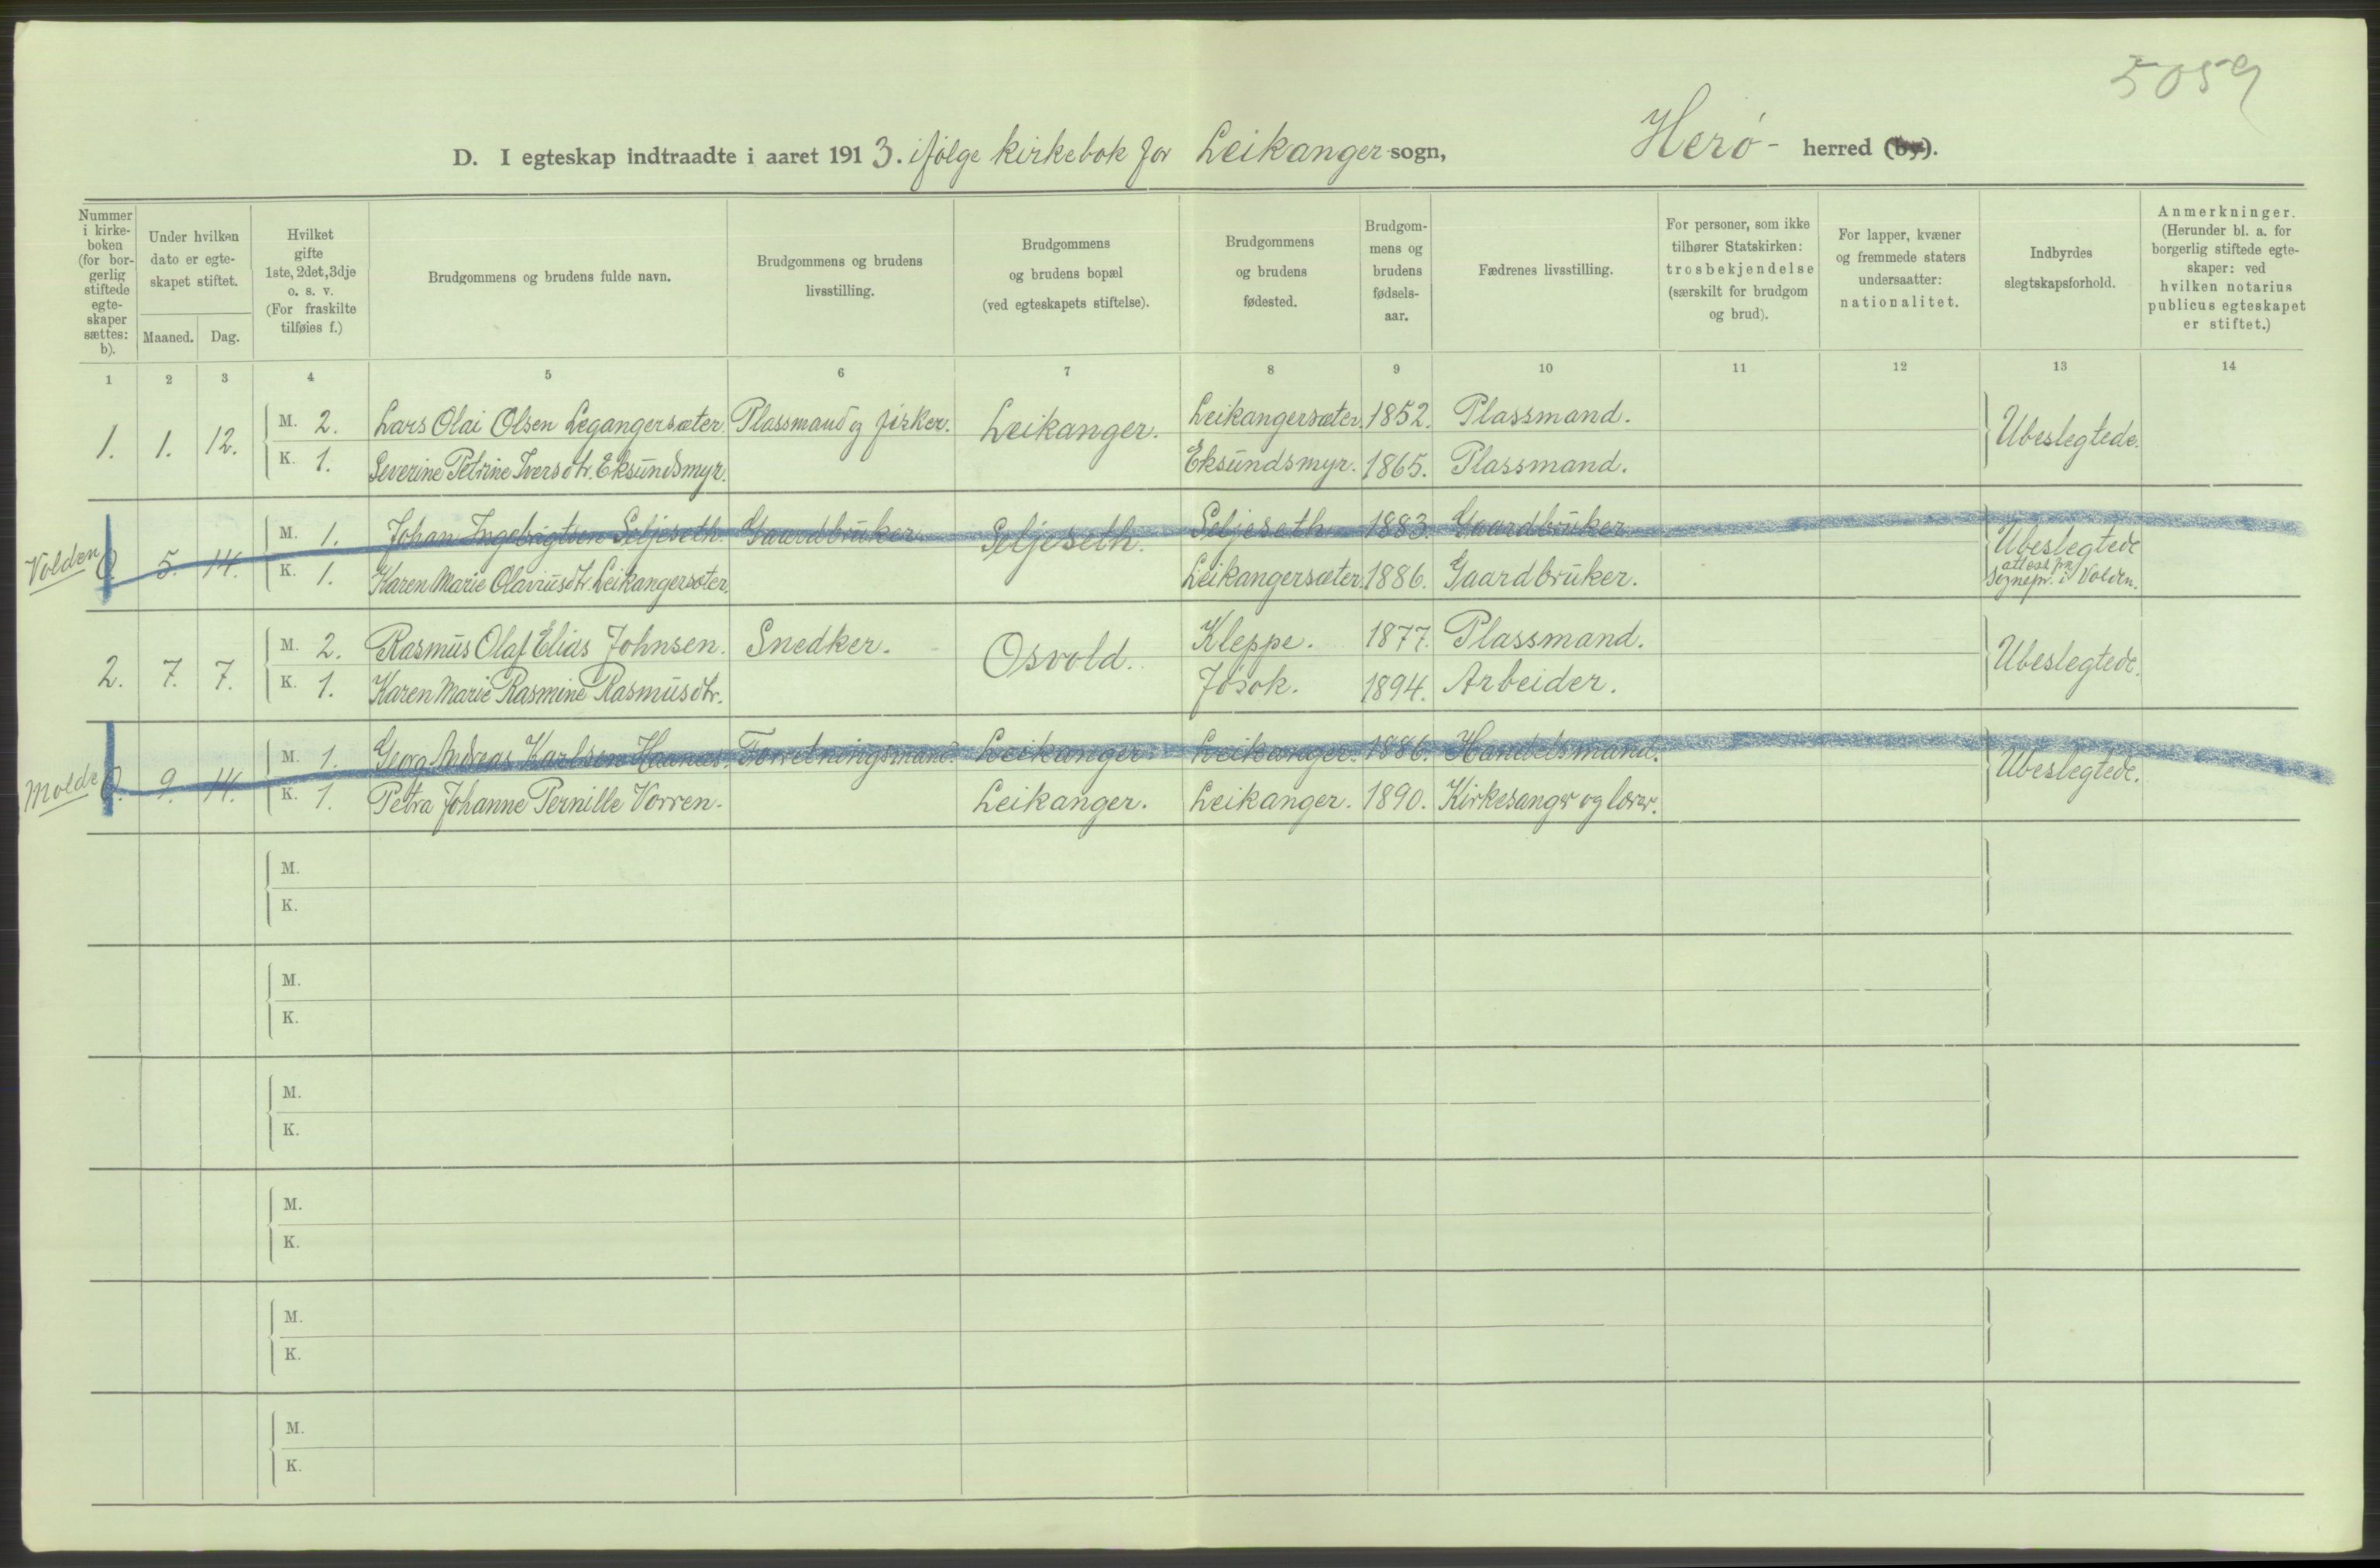 5059
D. I egteskap indtraadte i aaret 1913. ifølge kirkebok for Leikanger sogn, Herø- herred (by).
Nummer i kirkeboken (for borgerlig stiftede egteskaper sættes: b).
Under hvilken dato er egteskapet stiftet.
Maaned. Dag.
Hvilket gifte 1ste, 2det, 3dje o. s. v. (For fraskilte tilføies f.)
Brudgommens og brudens fulde navn.
Brudgommens og brudens livsstilling.
Brudgommens og brudens bopæl (ved egteskapets stiftelse).
Brudgommens og brudens fødested.
Brudgommens og brudens fødselsaar.
Fædrenes livsstilling.
For personer, som ikke tilhører Statskirken: trosbekjendelse (særskilt for brudgom og brud).
For lapper, kvæner og fremmede staters undersaatter: nationalitet.
Indbyrdes slegtskapsforhold.
Anmerkninger. (Herunder bl. a. for borgerlig stiftede egteskaper: ved hvilken notarius publicus egteskapet er stiftet.)
1 2 3 4 5 6 7 8 9 10 11 12 13 14
1. 1. 12. M. 2. Lars Olai Olsen Legangersæter. Plassmand og fisker. Leikanger. Leikangersæter. 1852. Plassmand. Ubeslegtede.
K. 1. Severine Petrine Iversdtr. Eksundsmyr. Eksundsmyr. 1865. Plassmand.
Volden 0. 5. 14. M. 1. Johan Ingebrigtsen Seljeseth. Gaardbruker. Seljeseth. Seljeseth 1883. Gaardbruker. Ubeslegtede
K. 1. Karen Marie Olaviusdtr. Leikangersæter. Leikangersæter. 1886. Gaardbruker. sognepr. i Volden.
2. 7. 7. M. 2. Rasmus Olaf Elias Johnsen. Snedker. Osvold. Kleppe. 1877. Plassmand. Ubeslegtede.
K. 1. Karen Marie Rasmine Rasmusdtr. Jøsok. 1894. Arbeider.
Molde 0. 9. 14. M. 1. Georg Andreas Karlsen Haanæs. Forretningsmand. Leikanger. Leikanger. 1886. Handelsmand. Ubeslegtede.
K. 1. Petra Johanne Pernille Vorren. Leikanger. Leikanger. 1890. Kirkesanger og lærer.
M.
K.
M.
K.
M.
K.
M.
K.
M.
K.
M.
K.